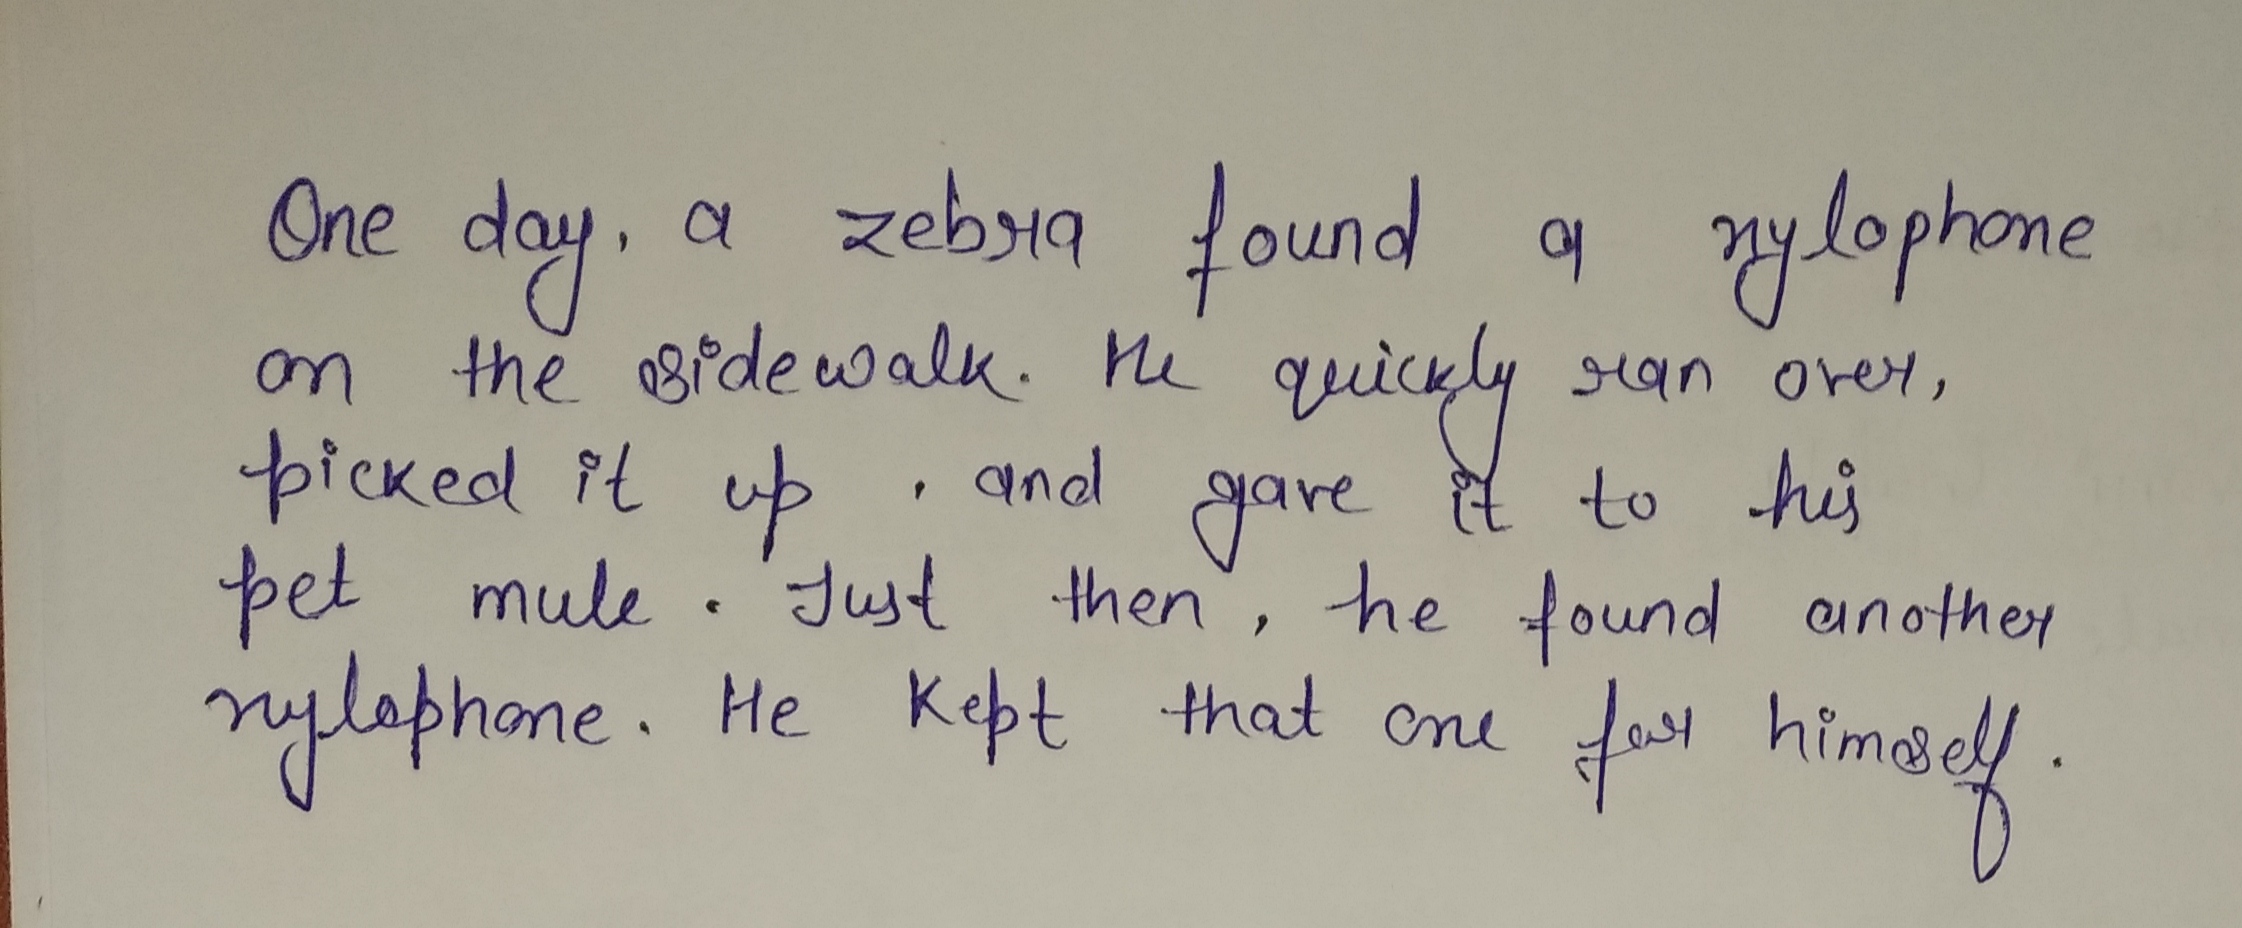 One day, a zebra found a xylophone
on the sidewalk. He quickly ran over,
picked it up, and gave it to his
pet mule. Just then, he found another
xylophone. He kept that one for himself.